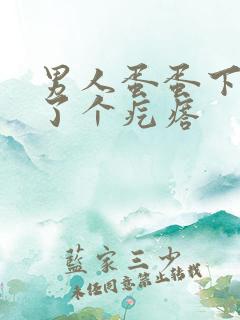 男人蛋蛋下
了个疙瘩
藍家三少
未经同意禁止转载